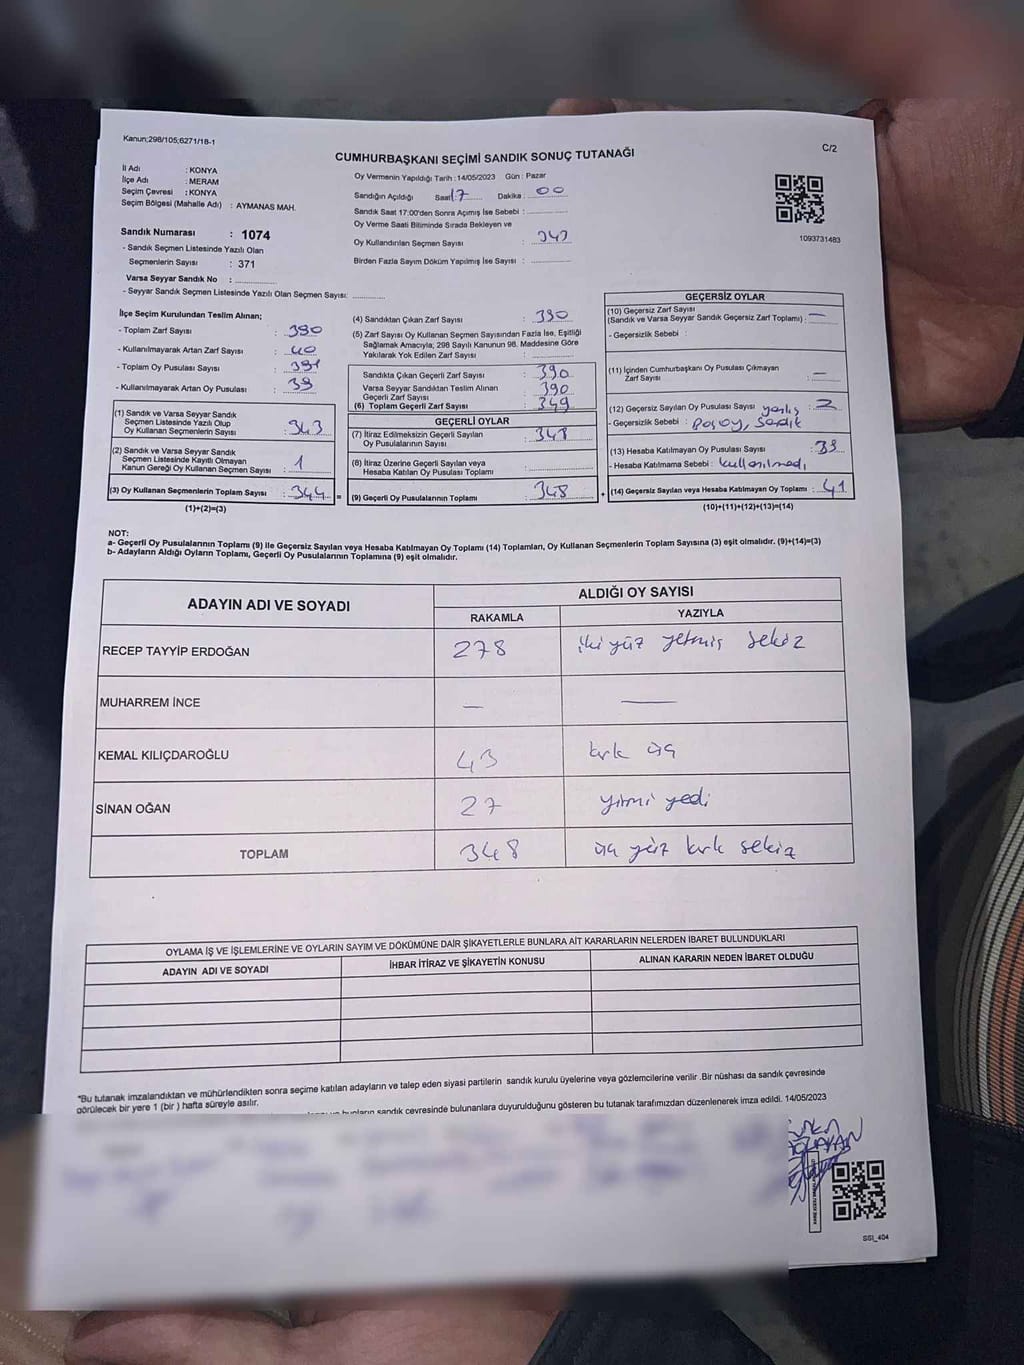 Kanun;298/105;6271/18-1
C/2
CUMHURBAŞKANI SEÇİMİ SANDIK SONUÇ TUTANAĞI
İl Adı : KONYA
İlçe Adı : MERAM
Seçim Çevresi : KONYA
Seçim Bölgesi (Mahalle Adı) : AYMANAS MAH.
Sandık Numarası : 1074
- Sandık Seçmen Listesinde Yazılı Olan
Seçmenlerin Sayısı : 371
Varsa Seyyar Sandık No :
- Seyyar Sandık Seçmen Listesinde Yazılı Olan Seçmen Sayısı:
Oy Vermenin Yapıldığı Tarih : 14/05/2023 Gün : Pazar
Sandığın Açıldığı Saat 17 Dakika : 00
Sandık Saat 17:00'den Sonra Açımış İse Sebebi :
Oy Verme Saati Bitiminde Sırada Bekleyen ve
Oy Kullandırılan Seçmen Sayısı : 343
Birden Fazla Sayım Döküm Yapılmış İse Sayısı :
1093731483
İlçe Seçim Kurulundan Teslim Alınan;
- Toplam Zarf Sayısı : 390
- Kullanılmayarak Artan Zarf Sayısı : 40
- Toplam Oy Pusulası Sayısı : 391
- Kullanılmayarak Artan Oy Pusulası : 39
(1) Sandık ve Varsa Seyyar Sandık
Seçmen Listesinde Yazılı Olup
Oy Kullanan Seçmenlerin Sayısı : 343
(2) Sandık ve Varsa Seyyar Sandık
Seçmen Listesinde Kayıtlı Olmayan
Kanun Gereği Oy Kullanan Seçmen Sayısı : 1
(3) Oy Kullanan Seçmenlerin Toplam Sayısı : 344 =
(1)+(2)=(3)
(4) Sandıktan Çıkan Zarf Sayısı : 390
(5) Zarf Sayısı Oy Kullanan Seçmen Sayısından Fazla İse, Eşitliği
Sağlamak Amacıyla; 298 Sayılı Kanunun 98. Maddesine Göre
Yakılarak Yok Edilen Zarf Sayısı :
Sandıkta Çıkan Geçerli Zarf Sayısı : 390
Varsa Seyyar Sandıktan Teslim Alınan
Geçerli Zarf Sayısı : 390
(6) Toplam Geçerli Zarf Sayısı : 349
GEÇERLİ OYLAR
(7) İtiraz Edilmeksizin Geçerli Sayılan
Oy Pusulalarının Sayısı : 348
(8) İtiraz Üzerine Geçerli Sayılan veya
Hesaba Katılan Oy Pusulası Toplamı :
(9) Geçerli Oy Pusulalarının Toplamı : 348 +
GEÇERSİZ OYLAR
(10) Geçersiz Zarf Sayısı
(Sandık ve Varsa Seyyar Sandık Geçersiz Zarf Toplamı) : —
- Geçersizlik Sebebi :
(11) İçinden Cumhurbaşkanı Oy Pusulası Çıkmayan
Zarf Sayısı : —
(12) Geçersiz Sayılan Oy Pusulası Sayısı : 2
- Geçersizlik Sebebi : yanlış Boş oy, Sandık
(13) Hesaba Katılmayan Oy Pusulası Sayısı : 39
- Hesaba Katılmama Sebebi : kullanılmadı
(14) Geçersiz Sayılan veya Hesaba Katılmayan Oy Toplamı : 41
(10)+(11)+(12)+(13)=(14)
NOT:
a- Geçerli Oy Pusulalarının Toplamı (9) ile Geçersiz Sayılan veya Hesaba Katılmayan Oy Toplamı (14) Toplamları, Oy Kullanan Seçmenlerin Toplam Sayısına (3) eşit olmalıdır. (9)+(14)=(3)
b- Adayların Aldığı Oyların Toplamı, Geçerli Oy Pusulalarının Toplamına (9) eşit olmalıdır.
ADAYIN ADI VE SOYADI ALDIĞI OY SAYISI
RAKAMLA YAZIYLA
RECEP TAYYİP ERDOĞAN 278 iki yüz yetmiş sekiz
MUHARREM İNCE — —
KEMAL KILIÇDAROĞLU 43 kırk üç
SİNAN OĞAN 27 yirmi yedi
TOPLAM 348 üç yüz kırk sekiz
OYLAMA İŞ VE İŞLEMLERİNE VE OYLARIN SAYIM VE DÖKÜMÜNE DAİR ŞİKAYETLERLE BUNLARA AİT KARARLARIN NELERDEN İBARET BULUNDUKLARI
ADAYIN ADI VE SOYADI İHBAR İTİRAZ VE ŞİKAYETİN KONUSU ALINAN KARARIN NEDEN İBARET OLDUĞU
"Bu tutanak imzalandıktan ve mühürlendikten sonra seçime katılan adayların ve talep eden siyasi partilerin sandık kurulu üyelerine veya gözlemcilerine verilir .Bir nüshası da sandık çevresinde
görülecek bir yere 1 (bir ) hafta süreyle asılır.
bunların sandık çevresinde bulunanlara duyurulduğunu gösteren bu tutanak tarafımızdan düzenlenerek imza edildi. 14/05/2023
SSİ_404